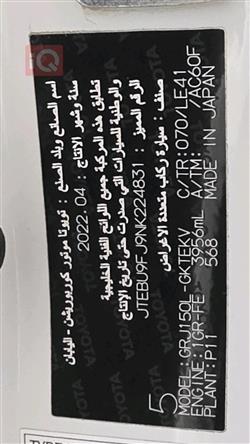 اسم الصانع وبلد الصنع : تويوتا موتور كوربوريشن - اليابان
سنة وشهر الإنتاج : 2022.04
تطابق هذه المركبة جميع اللوائح الفنية الخليجية
والوطنية للسيارات التي صدرت حتى تاريخ الإنتاج
الرقم المميز : JTEBU9FJ9NK224831
صنف : سيارة ركاب متعددة الاغراض
5
MODEL: GRJ150L-GKTEKV
C/TR: 070/LE41
ENGINE: 1GR-FE 3956mL
A/TM: /AC60F
PLANT: P11 568 MADE IN JAPAN
iQ